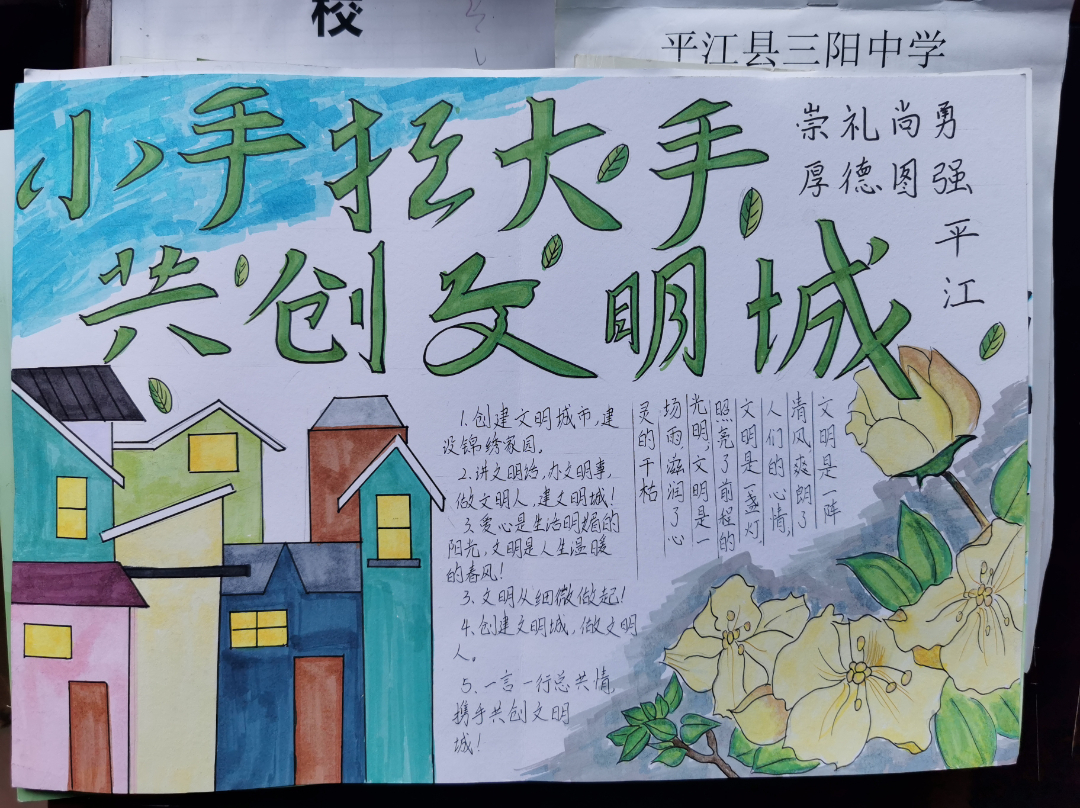 校
平江县三阳中学
小手拉大手
共创文明城
崇礼尚勇
厚德图强
平江
1.创建文明城市,建
设锦绣家园。
2.讲文明话,办文明事,
做文明人,建文明城!
3.爱心是生活明媚的
阳光,文明是人生温暖
的春风!
3.文明从细微做起!
4.创建文明城,做文明
人。
5.一言一行总共情
携手共创文明
城!
文明是一阵
清风爽朗了
人们的心情,
文明是一盏灯
照亮了前程的
光明,文明是一
场雨滋润了心
灵的干枯